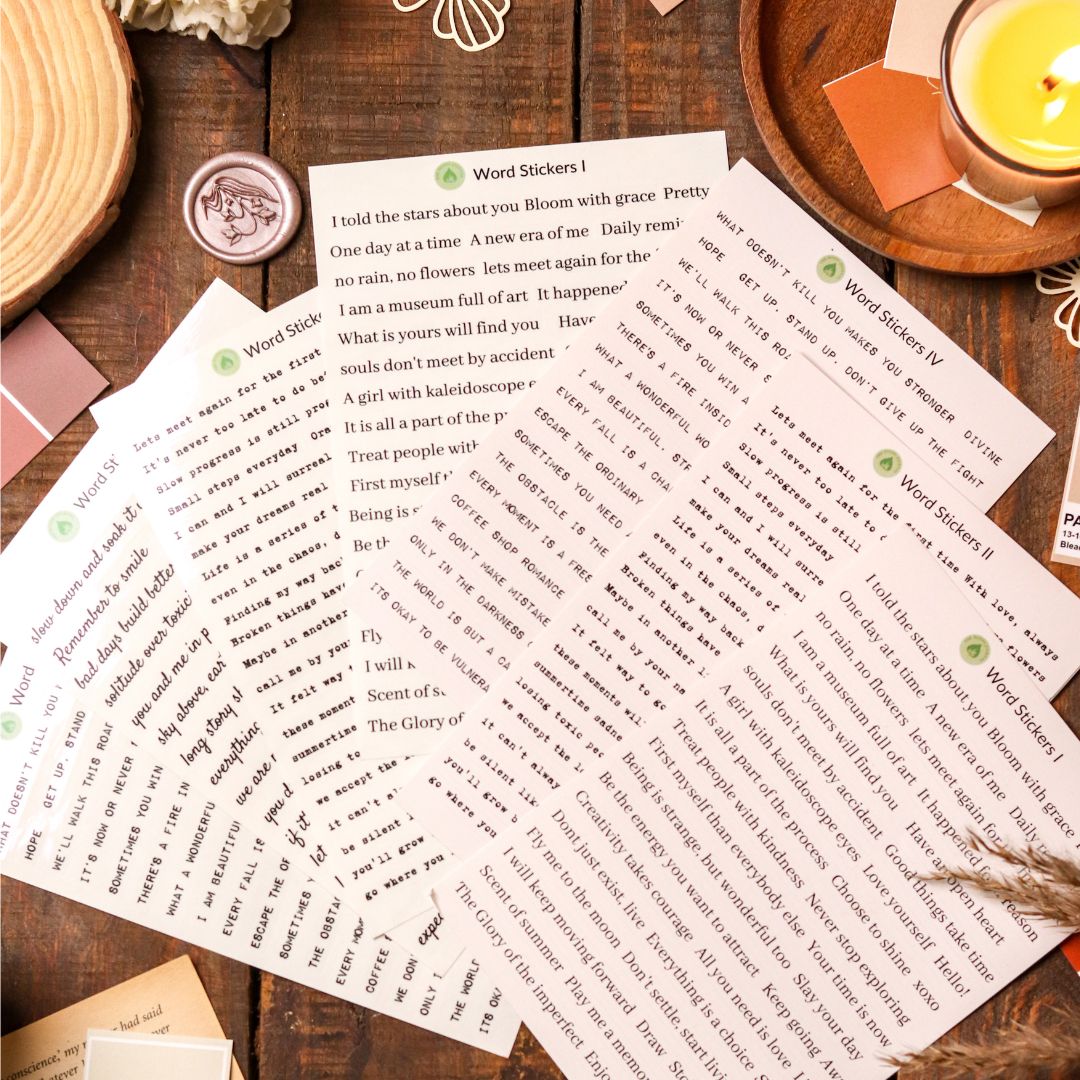 Word Stickers I
I told the stars about you Bloom with grace Pretty
One day at a time A new era of me Daily
no rain, no flowers lets meet again for the
I am a museum full of art It happened
What is yours will find you Have
souls don't meet by accident
A girl with kaleidoscope
It is all a part of the
Treat people with
First myself
Being is
Be th
Fly
I will
Scent of
The Glory of
Word Stickers IV
WHAT DOESN'T KILL YOU MAKES YOU STRONGER DIVINE
HOPE GET UP, STAND UP, DON'T GIVE UP THE FIGHT
WE'LL WALK THIS
IT'S NOW OR NEVER
SOMETIMES YOU WIN
THERE'S A FIRE
WHAT A WONDERFUL
I AM BEAUTIFUL,
EVERY FALL IS A
ESCAPE THE ORDINARY
SOMETIMES YOU NEED
THE OBSTACLE IS THE
EVERY MOMENT IS A
COFFEE SHOP ROMANCE
WE DON'T MAKE
ONLY IN THE DARKNESS
THE WORLD IS BUT A
ITS OKAY TO BE
Word Stickers II
Lets meet again for the first time With love, always
It's never too late to flowers
Slow progress is still
Small steps everyday
I can and I will
make your dreams real
Life is a series of
even in the chaos,
Finding my way back
Broken things have
Maybe in another
call me by your
It felt way to
these moments
summertime
losing toxic
we accept the
it can't always
be silent
you'll grow
go where you
Word Stickers I
I told the stars about you Bloom with grace
One day at a time A new era of me Daily
no rain, no flowers lets meet again for
I am a museum full of art It happened for a reason
What is yours will find you Have an open heart
souls don't meet by accident Good things take time
A girl with kaleidoscope eyes Love yourself Hello!
It is all a part of the process Choose to shine xoxo
Treat people with kindness Never stop exploring
First myself than everybody else Your time is now
Being is strange, but wonderful too Slay your day
Be the energy you want to attract Keep going
Creativity takes courage All you need is love
Dont just exist, live Everything is a choice
Fly me to the moon Don't settle, start living
I will keep moving forward Draw
Scent of summer Play me a
The Glory of the imperfect
Word
Lets meet again for the first
It's never too late to do
Slow progress is still
Small steps everyday
I can and I will surreal
make your dreams real
Life is a series of
even in the chaos,
Finding my way back
Broken things have
Maybe in another
call me by your
It felt way
these moment
summertime
losing to
we accept the
it can't
be silent
you'll grow
go where you
Word
slow down and soak it
Remember to smile
bad days build better
solitude over toxic
you and me in
sky above,
long story
everything
we are
you
if
let
Word
WHAT DOESN'T KILL YOU
HOPE GET UP, STAND
WE'LL WALK THIS ROAD
IT'S NOW OR NEVER
SOMETIMES YOU WIN
THERE'S A FIRE IN
WHAT A WONDERFUL
I AM BEAUTIFUL
EVERY FALL IS
ESCAPE THE
SOMETIMES
THE
EVERY
COFFEE
WE DON'
ONLY
THE WORLD
ITS
had said
conscience,' my